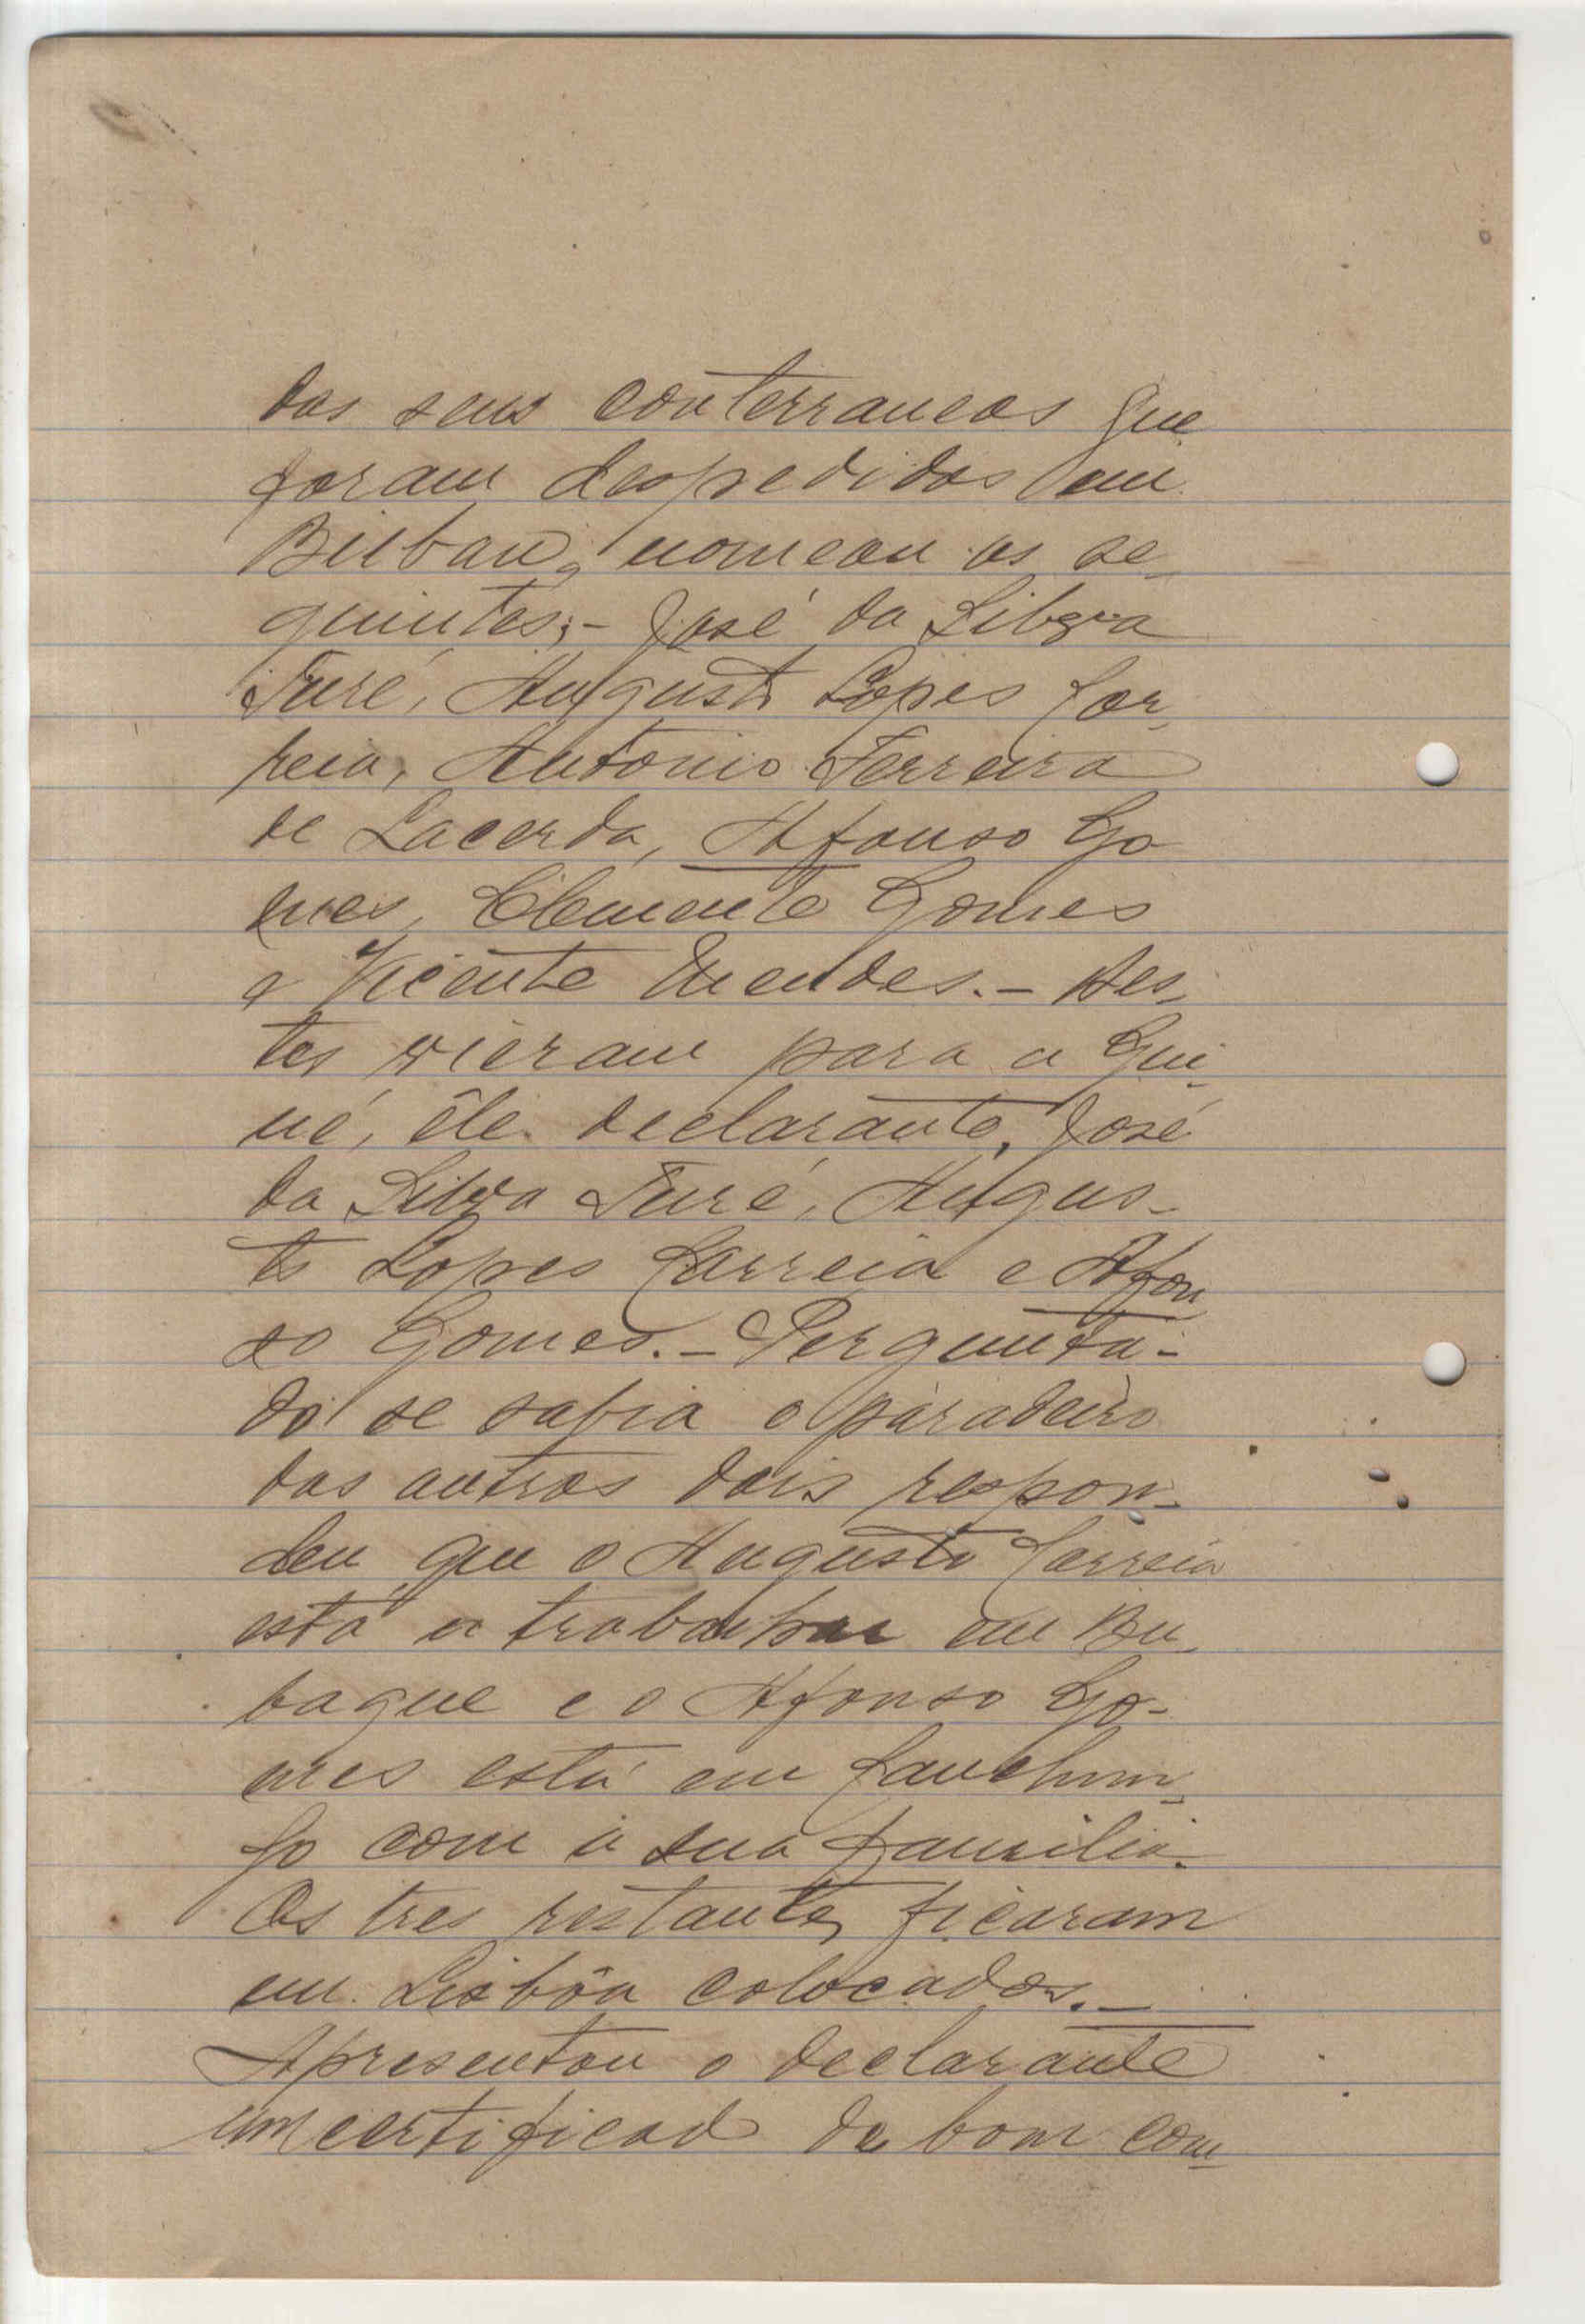 dos seus conterraneos que
foram despedidos em
Bilbau, nomeou os se-
guintes;- José da Silva
Turé, Augusto Lopes Cor-
reia, Antonio Ferreira
de Lacerda, Afonso Go
mes, Clemente Gomes
e Vicente Mendes.- Des-
tes vieram para a Gui-
né, êle declarante, José
da Silva Turé, Augus-
to Lopes Correia e Afon
so Gomes.- Pergunta-
do se sabia o paradeiro
dos outros dois respon-
deu que o Augusto Correia
está a trabalhar em Bu-
baque e o Afonso Go-
mes está em Canchun-
go com a sua familia.
Os tres restantes ficaram
em Lisbôa colocados.-
Apresentou o declarante
um certificad de bom com